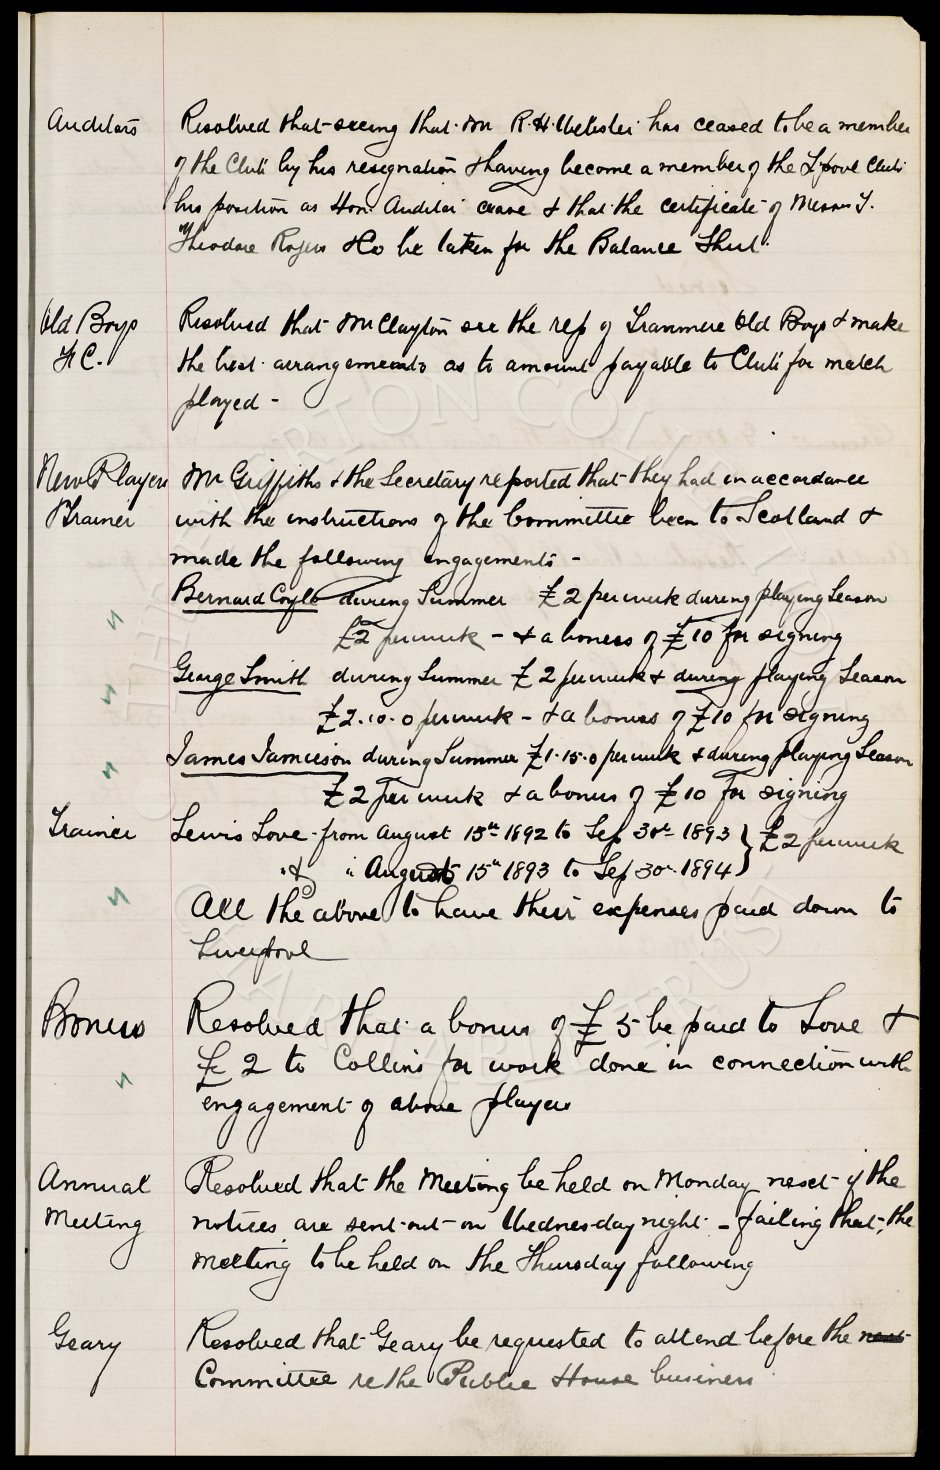 Auditors
Resolved that seeing that Mr R.H. Webster has ceased to be a member
of the Club by his resignation & having become a member of the L'pool Club
his position as Hon. Auditor cease & that the certificate of Messrs T.
Theodore Rogers & Co be taken for the Balance Sheet.
Old Boys
F.C.
Resolved that Mr Clayton see the rep of Tranmere Old Boys & make
the best arrangements as to amount payable to Club for match
played -
New Players
& Trainer
Mr Griffiths & the Secretary reported that they had in accordance
with the instructions of the Committee been to Scotland &
made the following engagements -
Bernard Coyle during Summer £2 per week during playing Season
£2 per week - & a boness of £10 for signing
George Smith during Summer £2 per week & during playing Season
£2.10.0 per week - & a bonus of £10 for signing
James Jamieson during Summer £1.15.0 per week & during playing Season
£2 per week & a bonus of £10 for signing
Trainer
Lewis Love - from August 15th 1892 to Sep 30th 1893 } £2 per week
" & " August 15th 1893 to Sep 30th 1894 }
All the above to have their expenses paid down to
Liverpool
Boness
Resolved that a bonus of £5 be paid to Love &
£2 to Collins for work done in connection with
engagement of above players
Annual
Meeting
Resolved that the Meeting be held on Monday next if the
notices are sent out on Wednesday night - failing that, the
meeting to be held on the Thursday following
Geary
Resolved that Geary be requested to attend before the next
Committee re the Public House business
EVERTON COLLECTION
CHARITABLE TRUST